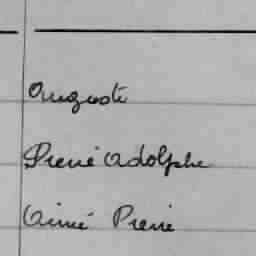 Auguste
René Adolphe
Aimé Pierre